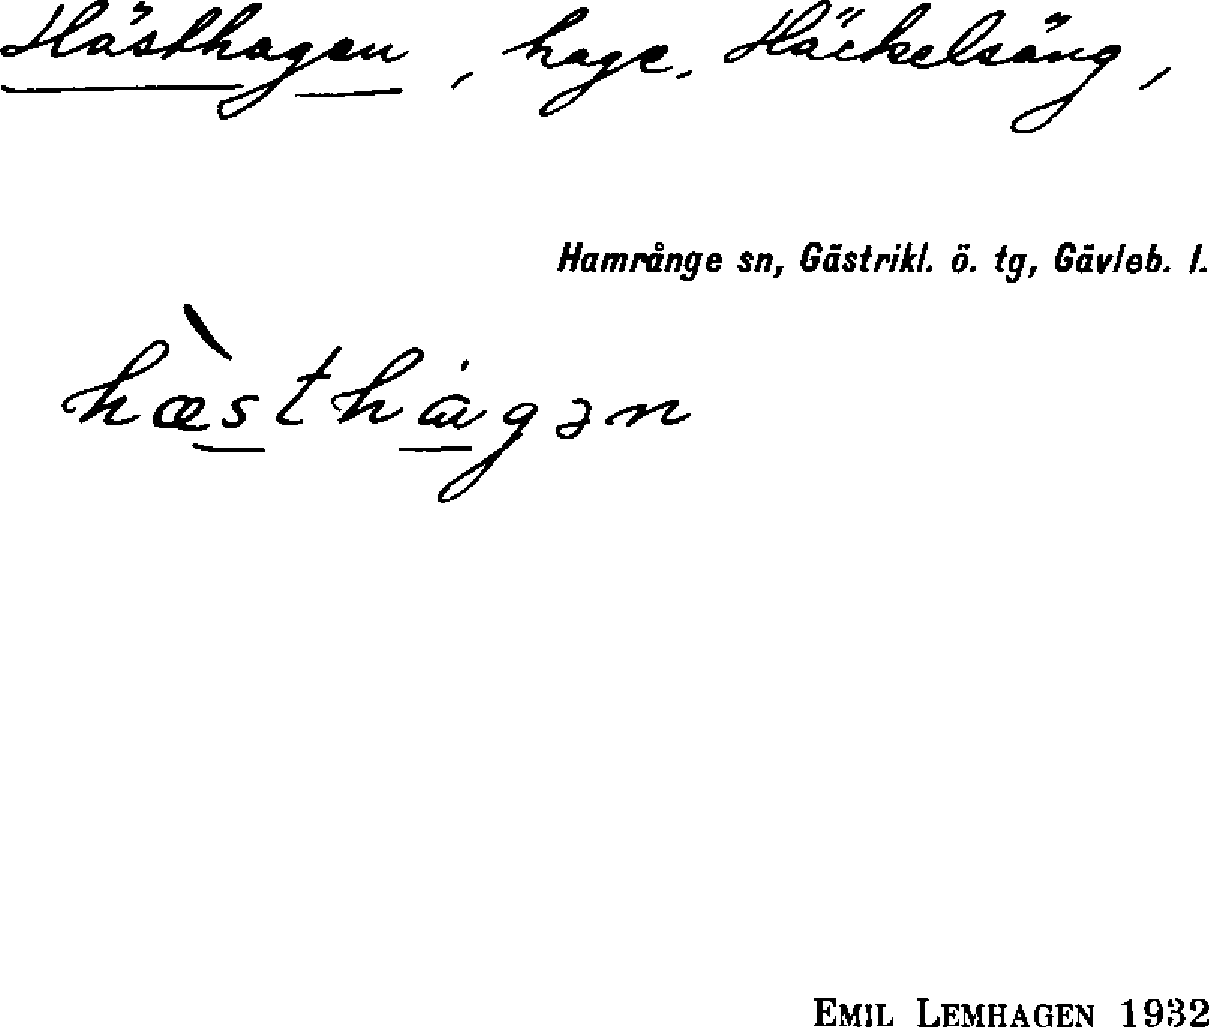 Hästhagen, hage, Häckelsäng,
Hamrånge sn, Gästrikl. ö. tg, Gävleb. l.
hæ̀sthágən
EMIL LEMHAGEN 1932